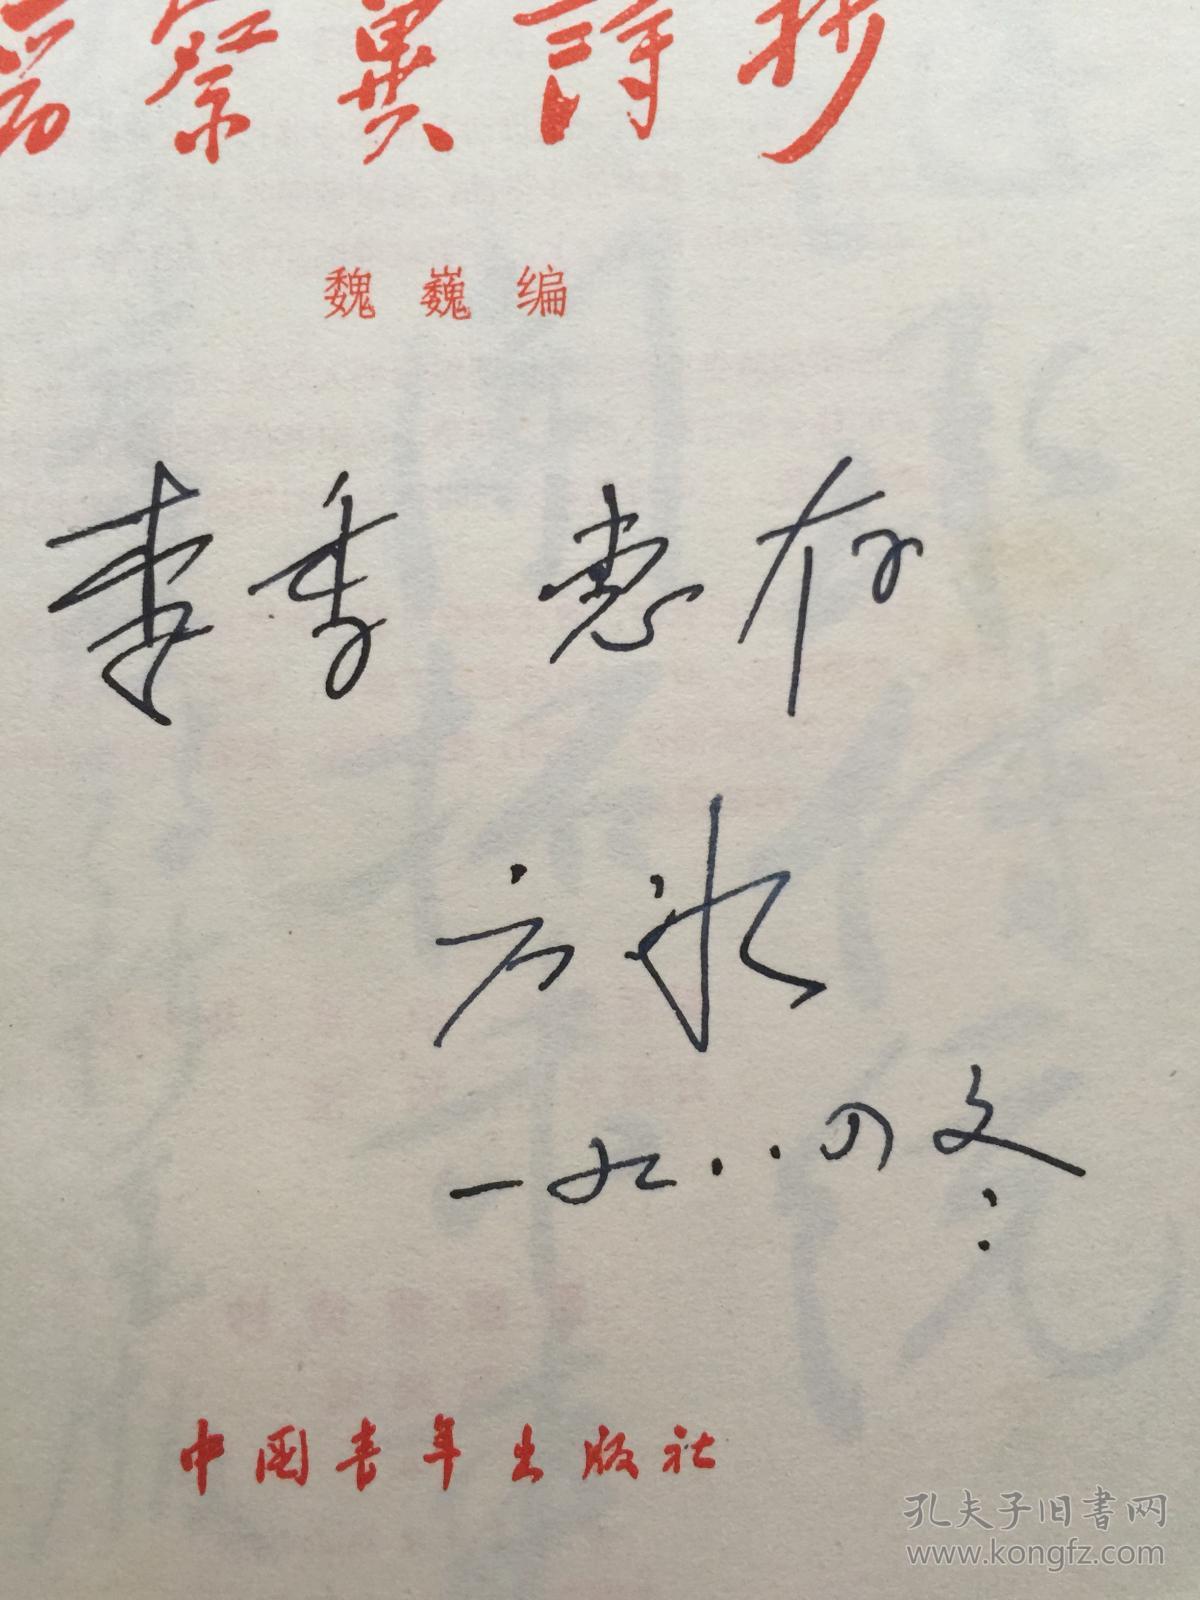 晋察冀詩抄
魏巍编
李季 惠存
方冰
一九..四冬:
中国青年出版社
孔夫子旧書网
www.kongfz.com